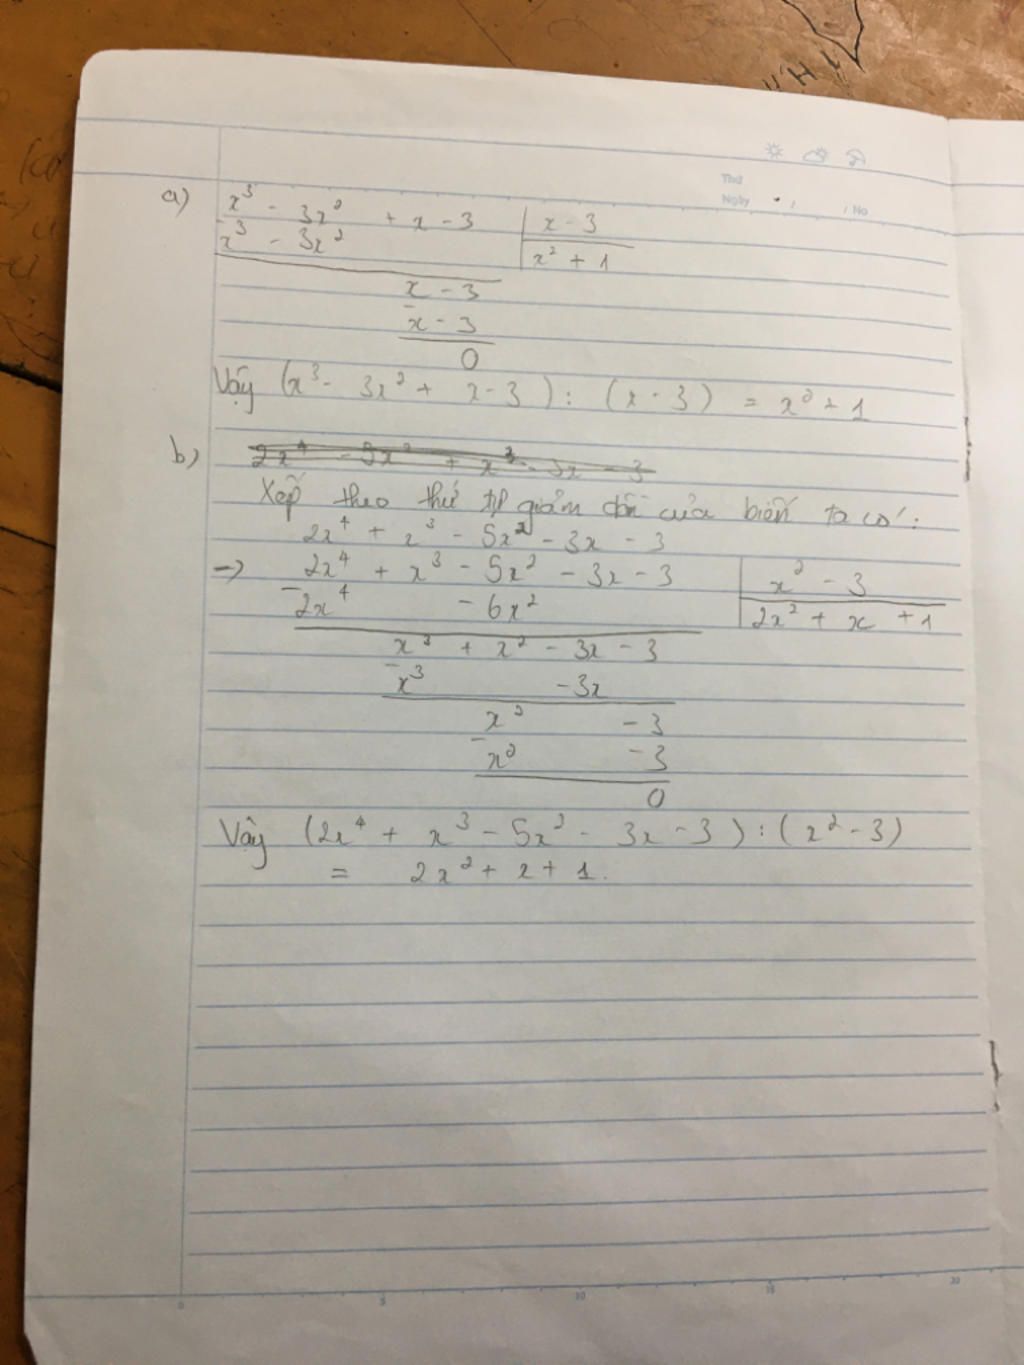 Thứ
Ngày / / No
a) x³ - 3x² + x - 3 | x - 3
- x³ - 3x² | x² + 1
x - 3
- x - 3
0
Vậy (x³ - 3x² + x - 3) : (x - 3) = x² + 1
b) 2x⁴ - 5x² + x³ - 3x - 3
Xếp theo thứ tự giảm dần của biến ta có:
2x⁴ + x³ - 5x² - 3x - 3
→ 2x⁴ + x³ - 5x² - 3x - 3 | x² - 3
- 2x⁴ - 6x² | 2x² + x + 1
x³ + x² - 3x - 3
- x³ - 3x
x² - 3
- x² - 3
0
Vậy (2x⁴ + x³ - 5x² - 3x - 3) : (x² - 3)
= 2x² + x + 1.
0 5 10 15 20